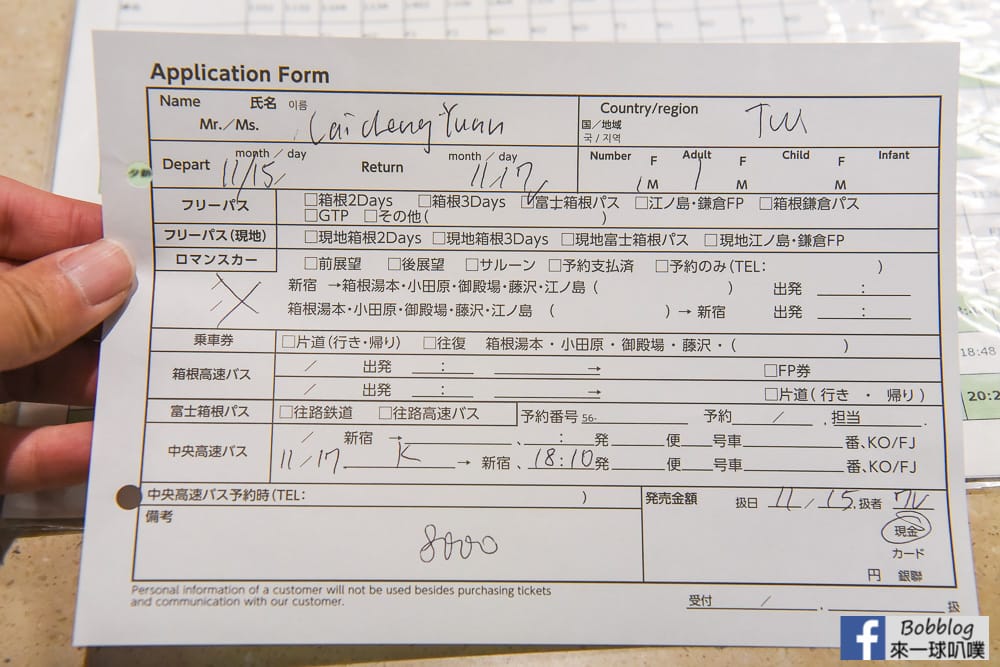 Application Form
Name 氏名 이름 Mr./Ms. Lai cheng Yuan Country/region 国/地域 국/지역 TW
Depart month/day 11/15 Return month/day 11/17 Number F M Adult F M Child F M Infant
フリーパス □箱根2Days □箱根3Days □富士箱根パス □江ノ島・鎌倉FP □箱根鎌倉パス
□GTP □その他( )
フリーパス(現地) □現地箱根2Days □現地箱根3Days □現地富士箱根パス □現地江ノ島・鎌倉FP
ロマンスカー □前展望 □後展望 □サルーン □予約支払済 □予約のみ(TEL: )
新宿 →箱根湯本・小田原・御殿場・藤沢・江ノ島 ( ) 出発 :
箱根湯本・小田原・御殿場・藤沢・江ノ島 ( ) → 新宿 出発 :
乗車券 □片道(行き・帰り) □往復 箱根湯本・小田原・御殿場・藤沢・( )
箱根高速バス / 出発 : → □FP券
/ 出発 : → □片道(行き ・ 帰り)
富士箱根パス □往路鉄道 □往路高速バス 予約番号 56- 予約 / . 担当 .
中央高速バス / 新宿 → 、 : 発 便 号車 番、KO/FJ
11/17 K → 新宿、18:10発 便 号車 番、KO/FJ
中央高速バス予約時(TEL: ) 発売金額 扱日 11/15. 扱者
備考 8000 現金
カード
円 銀聯
Personal information of a customer will not be used besides purchasing tickets
and communication with our customer.
受付 / . 扱
18:48
20:2
f Bobblog
來一球叭噗